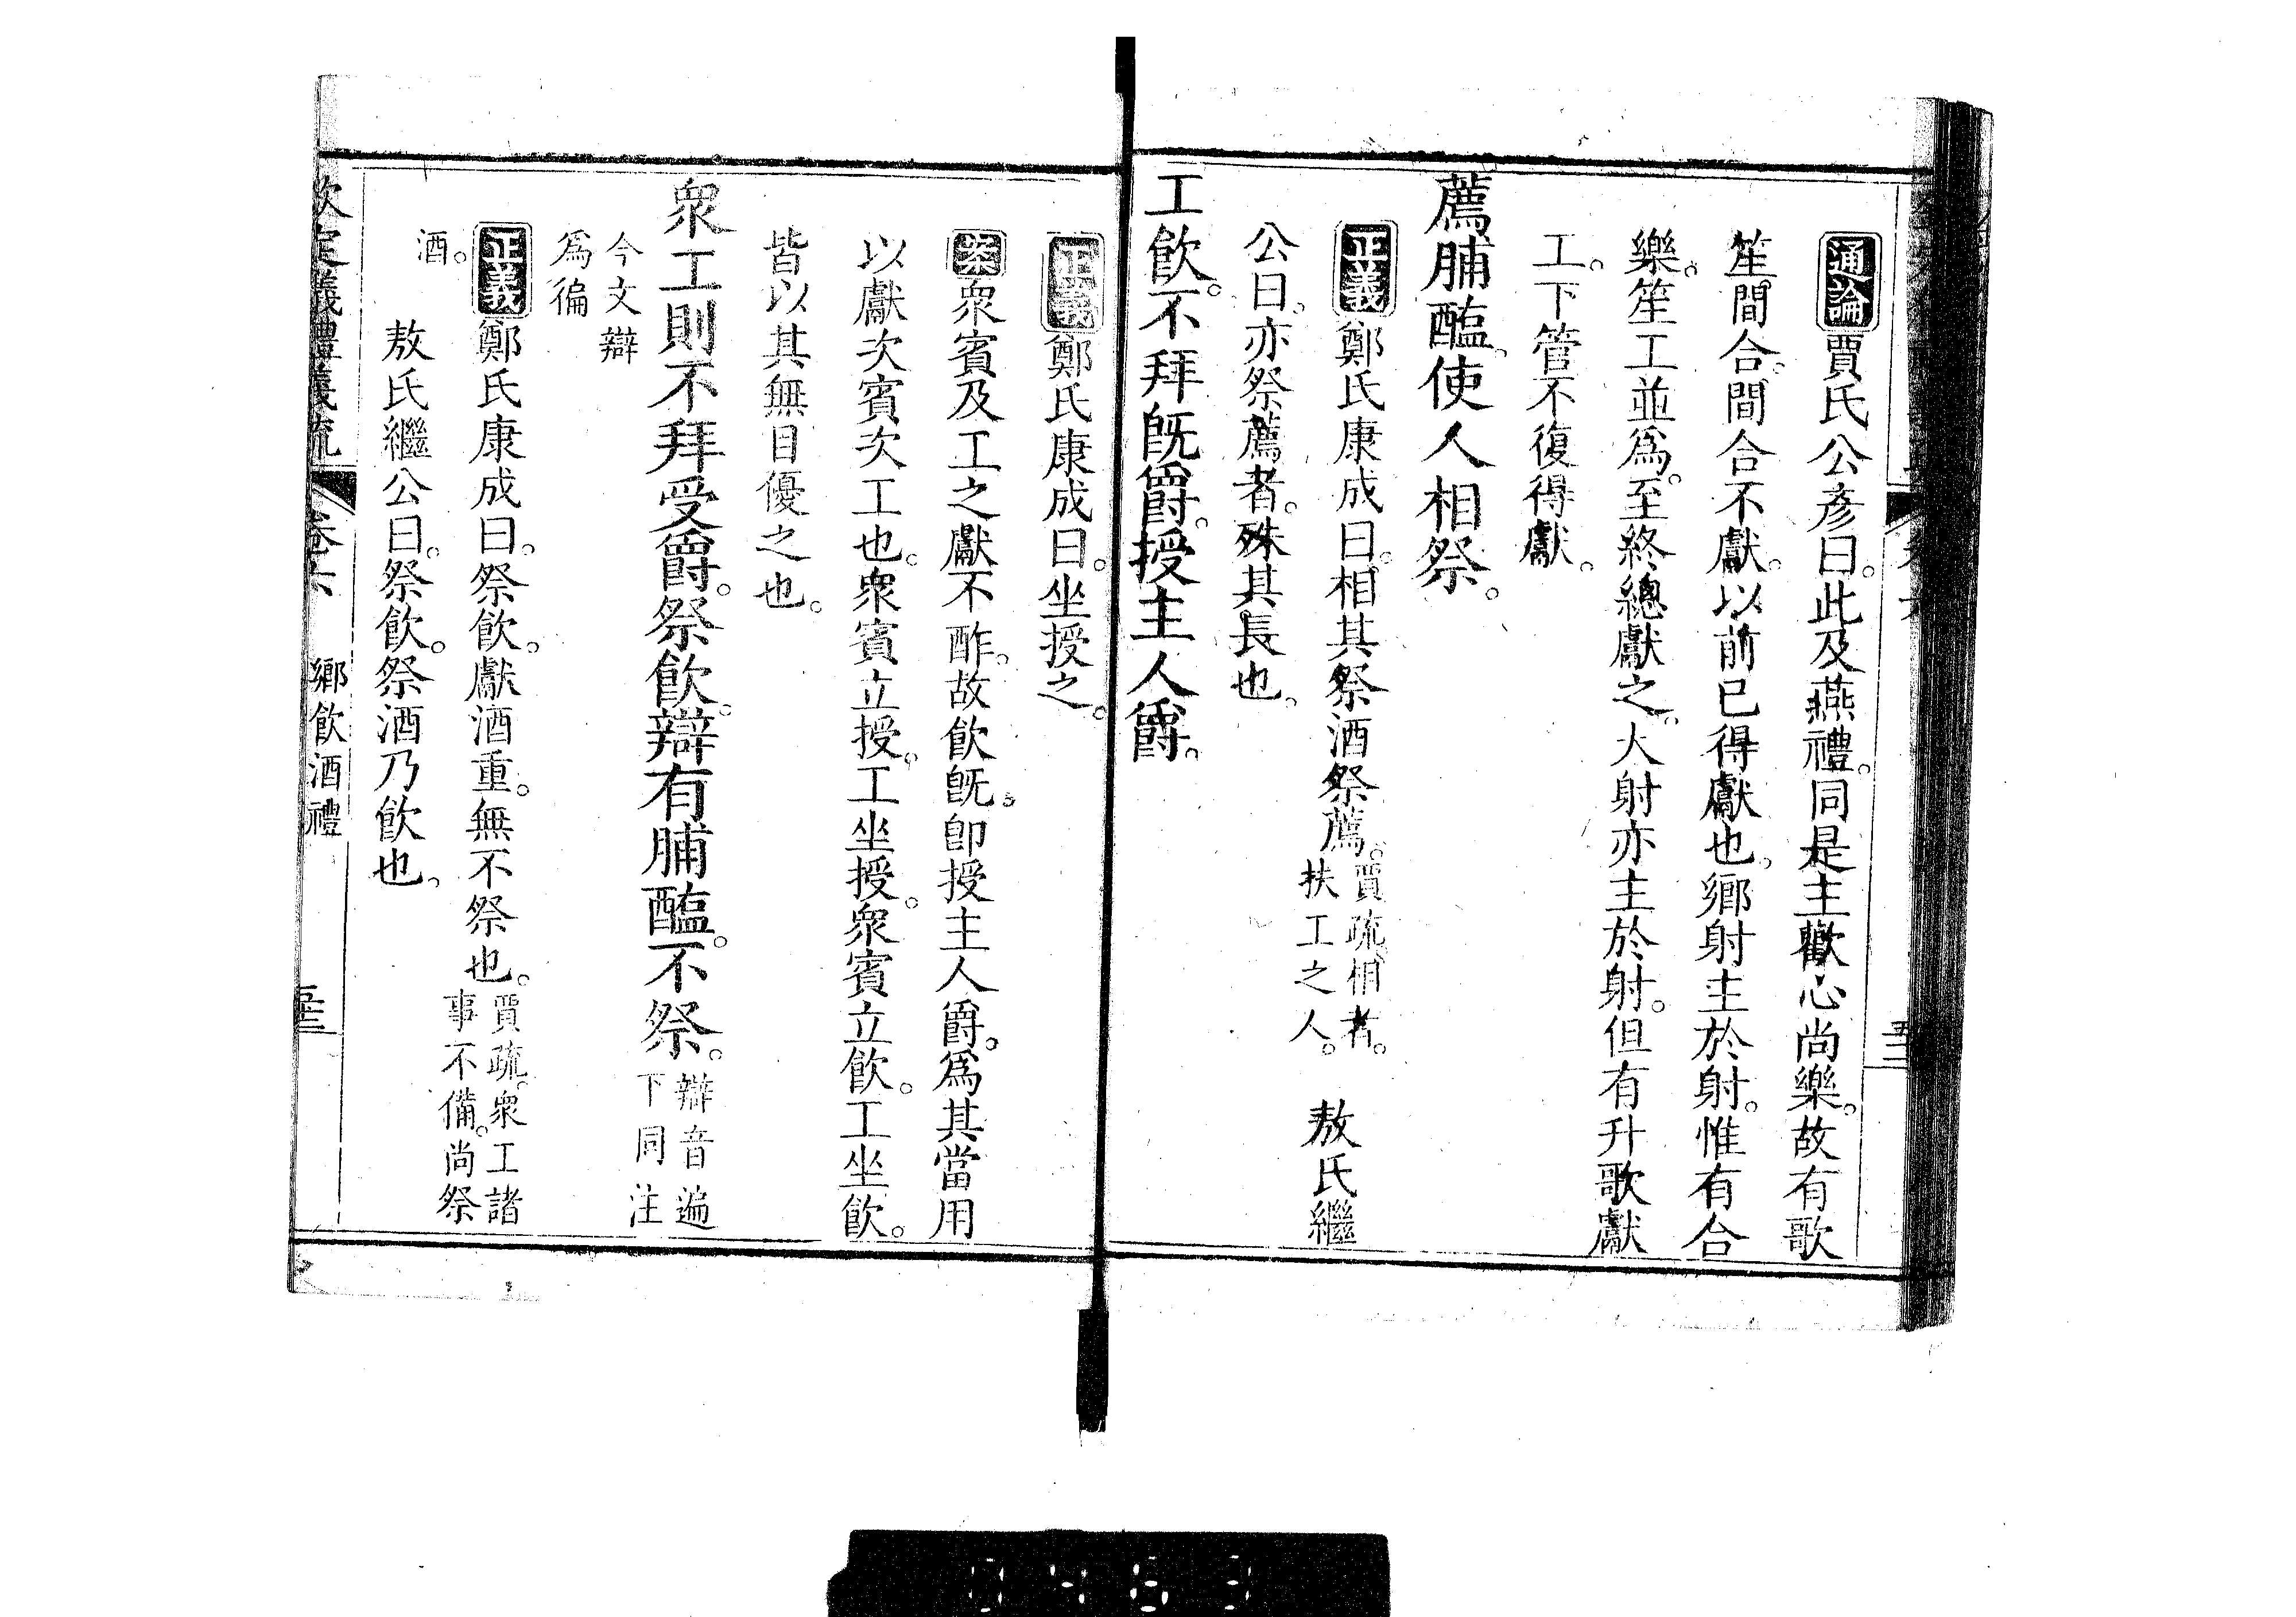 通論賈氏公彥曰。此及燕禮。同是主歡心尚樂。故有歌
笙。間合。間合不獻。以前已得獻也。鄉射主於射。惟有合
樂。笙工並爲。至終總獻之。大射亦主於射。但有升歌獻
工。下管不復得獻。
薦脯醢。使人相祭。
正義鄭氏康成曰。相其祭酒祭薦。賈疏。相者。扶工之人。 敖氏繼
公曰。亦祭薦者。殊其長也。
工飲。不拜旣爵。授主人爵。
正義鄭氏康成曰。坐授之。
案衆賓及工之獻不酢。故飲旣。卽授主人爵。爲其當用
以獻次賓次工也。衆賓立授。工坐授。衆賓立飲。工坐飲。
皆以其無目優之也。
衆工則不拜受爵。祭飲。辯有脯醢。不祭。辯音遍下同注
今文辯爲徧
正義鄭氏康成曰。祭飲。獻酒重。無不祭也。賈疏。衆工諸事不備。尚祭
酒。 敖氏繼公曰。祭飲。祭酒乃飲也。
欽定義禮義疏 卷六 鄉飲酒禮 五三